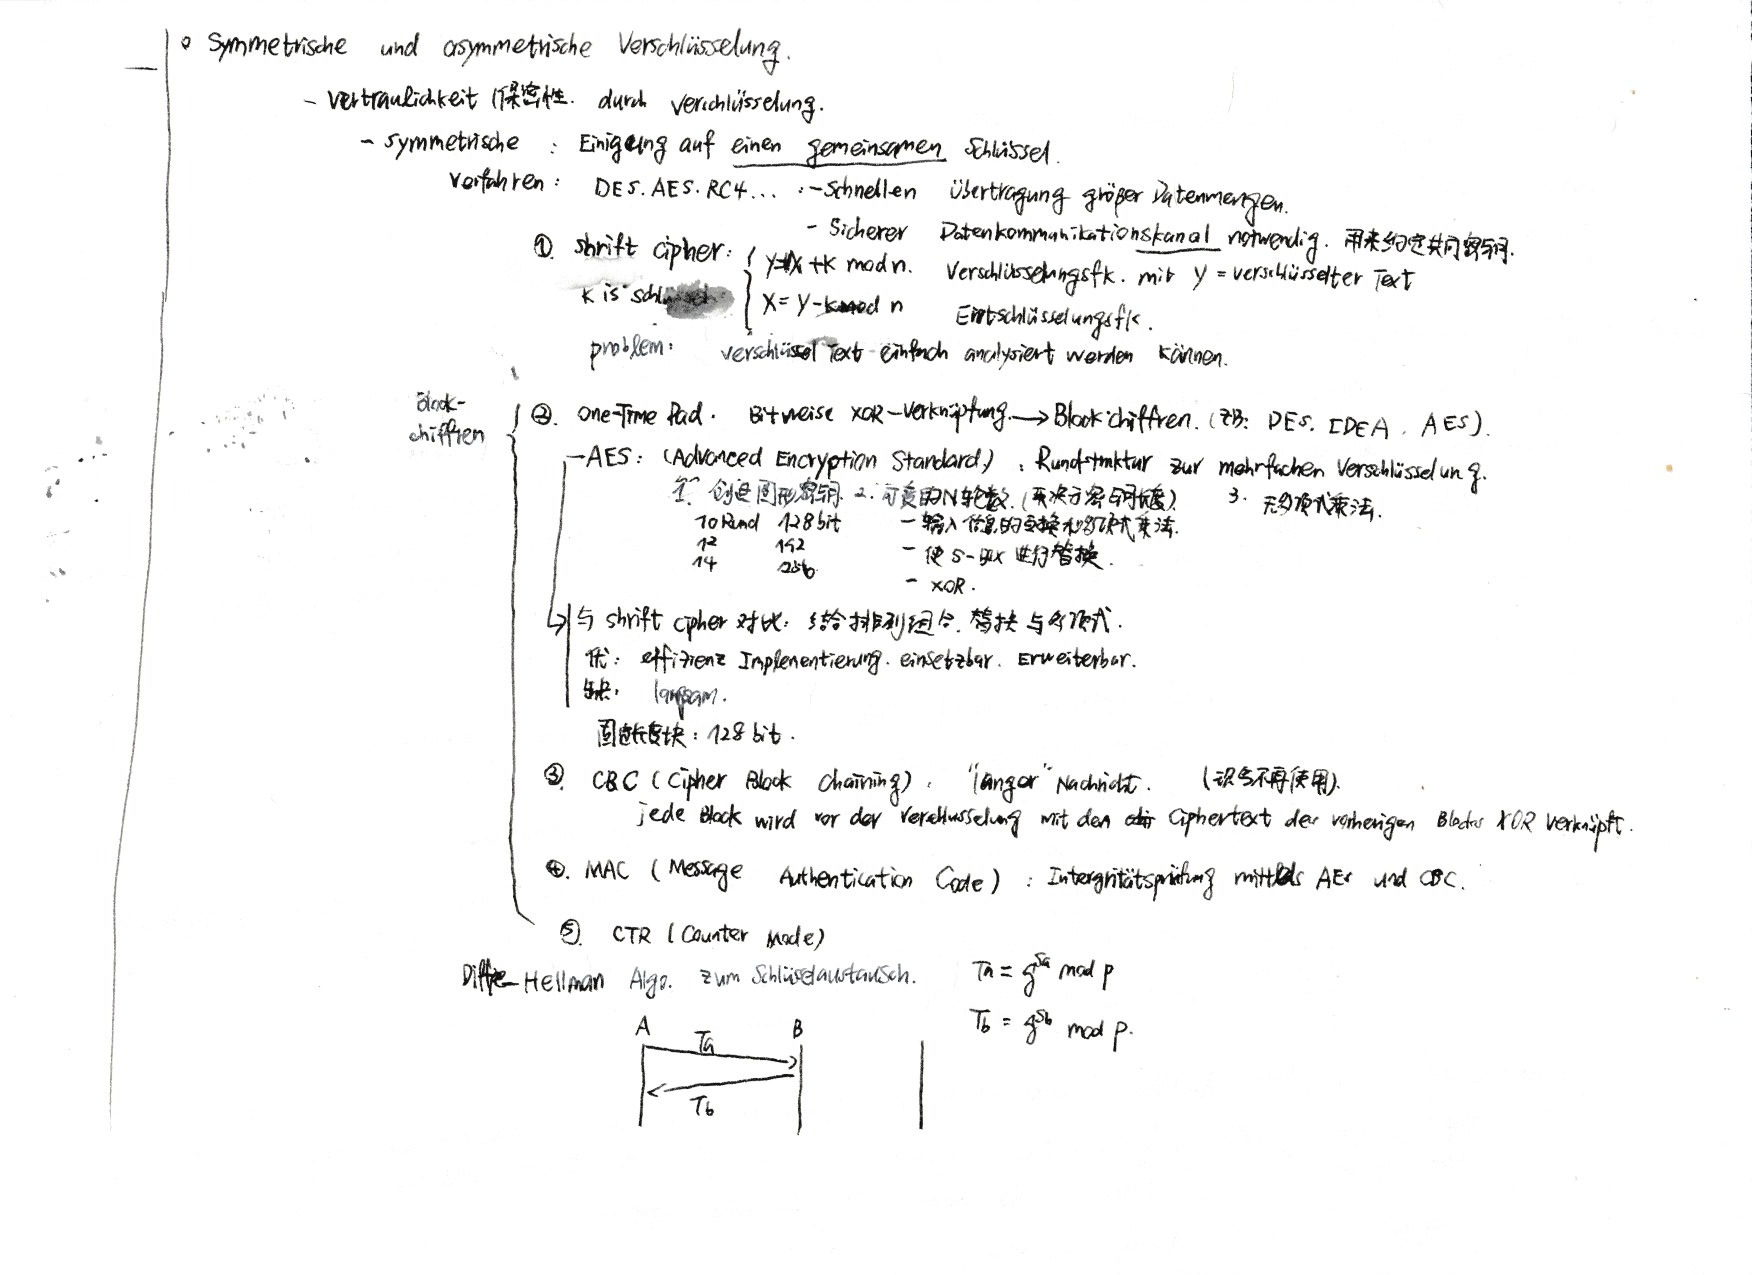 Symmetrische und asymmetrische Verschlüsselung.
- Vertraulichkeit (保密性. durch verschlüsselung.
- symmetrische : Einigung auf einen gemeinsamen Schlüssel.
Verfahren: DES. AES. RC4... : - Schnellen Übertragung größer Datenmengen.
- Sicherer Datenkommunikationskanal notwendig. 用来约定共同密钥.
① shrift cipher: y=x+k mod n. Verschlüsselungsfk. mit Y = verschlüsselter Text
k is schlüssel X = Y-k mod n Entschlüsselungsfk.
problem: verschlüssel Text einfach analysiert werden können.
Block-
chiffren
② One-Time Pad. Bitweise XOR-Verknüpfung → Blockchiffren. (ZB: DES. IDEA. AES).
- AES: (Advanced Encryption Standard). Rundstruktur zur mehrfachen Verschlüsselung.
1. 创造圆形密钥. 2. 可变的N轮数. (取决于密钥长度) 3. 无多项式乘法.
10 Rund 128 bit - 输入信息的变换和多项式乘法.
12 192 - 使 S-Box 进行替换.
14 256 - XOR.
与 shrift cipher 对比: 结合排列组合. 替换与多项式.
优: effizienz Implementierung. einsetzbar. Erweiterbar.
缺: langsam.
固定长度块: 128 bit.
③ CBC (Cipher Block Chaining). "langer" Nachricht. (现今不再使用).
jede Block wird vor der Verschlusselung mit den Ciphertext des vorherigen Blocks XOR verknüpft.
④. MAC (Message Authentication Code) : Intergritätsprüfung mittels AES und CBC.
⑤. CTR (Counter Mode)
Diffie-Hellman Algo. zum Schlüsselaustausch. Ta = g^Sa mod p
Tb = g^Sb mod p.
A B
Ta
Tb